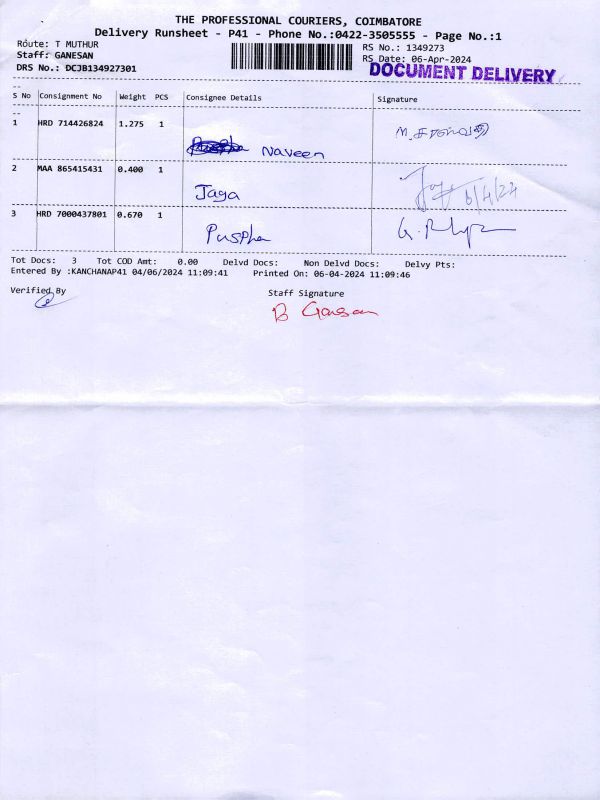 THE PROFESSIONAL COURIERS, COIMBATORE
Delivery Runsheet - P41 - Phone No.:0422-3505555 - Page No.:1
Route: T MUTHUR
RS No.: 1349273
Staff: GANESAN
RS Date: 06-Apr-2024
DRS No.: DCJB134927301
DOCUMENT DELIVERY
S No Consignment No Weight PCS Consignee Details Signature
1 HRD 714426824 1.275 1 Naveen
2 MAA 865415431 0.400 1 Jaga 6/4/24
3 HRD 7000437801 0.670 1 Puspha
Tot Docs: 3 Tot COD Amt: 0.00 Delvd Docs: Non Delvd Docs: Delvy Pts:
Entered By :KANCHANAP41 04/06/2024 11:09:41 Printed On: 06-04-2024 11:09:46
Verified By Staff Signature
B Ganesan